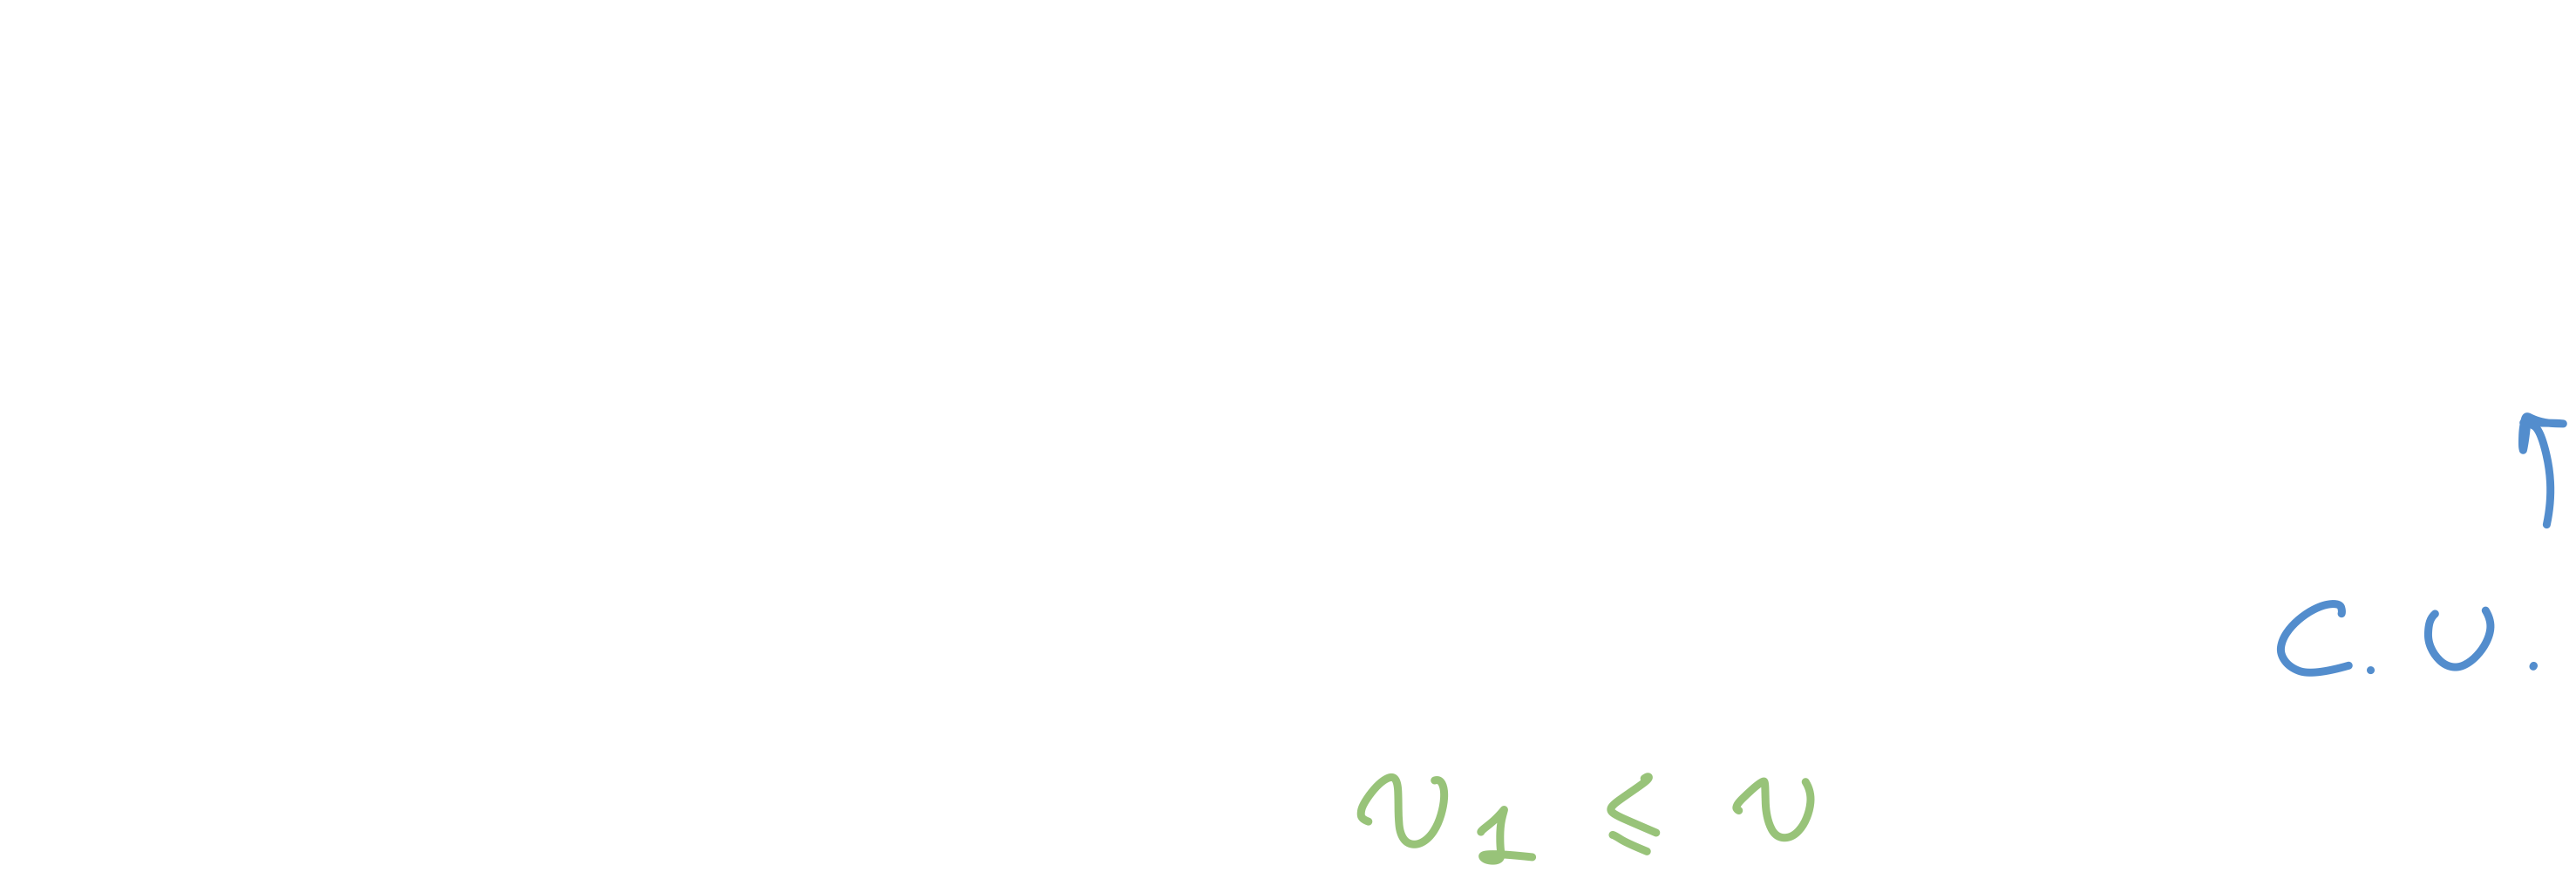 C. U.
v₁ ⩽ v